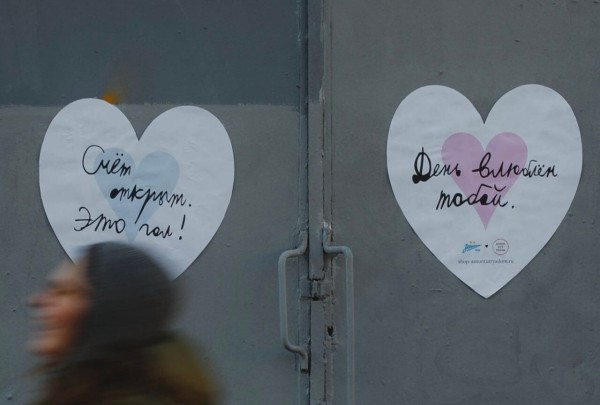 Счёт
открыт.
Это гол!
День влюблён
тобой.